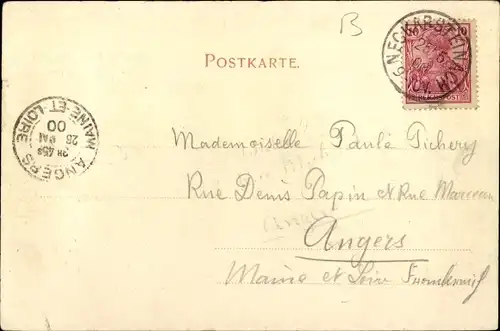 B
POSTKARTE.
NECKARSTEINACH
ANGERS
MAINE-ET-LOIRE
2E 45S
26
MAI
00
Mademoiselle Paule Pichery
Rue Denis Papin et Rue Marceau
Angers
Maine et Loire Frankreich